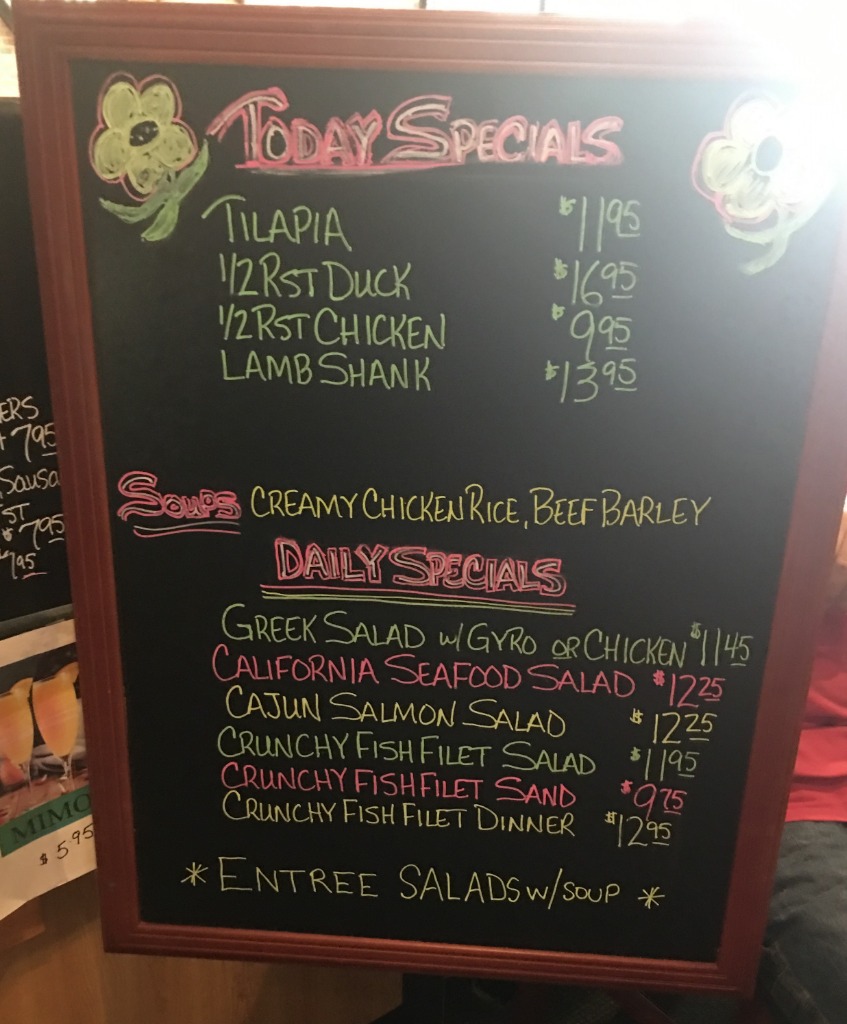 TODAY SPECIALS
TILAPIA $11 95
1/2 RST DUCK $16 95
1/2 RST CHICKEN $9 95
LAMB SHANK $13 95
SOUPS CREAMY CHICKEN RICE, BEEF BARLEY
DAILY SPECIALS
GREEK SALAD W/ GYRO OR CHICKEN $11 45
CALIFORNIA SEAFOOD SALAD $12 25
CAJUN SALMON SALAD $12 25
CRUNCHY FISH FILET SALAD $11 95
CRUNCHY FISH FILET SAND $9 75
CRUNCHY FISH FILET DINNER $12 95
* ENTREE SALADS W/ SOUP *
ERS
7 95
Sausa
ST
$7 95
7 95
MIMO
$5.95